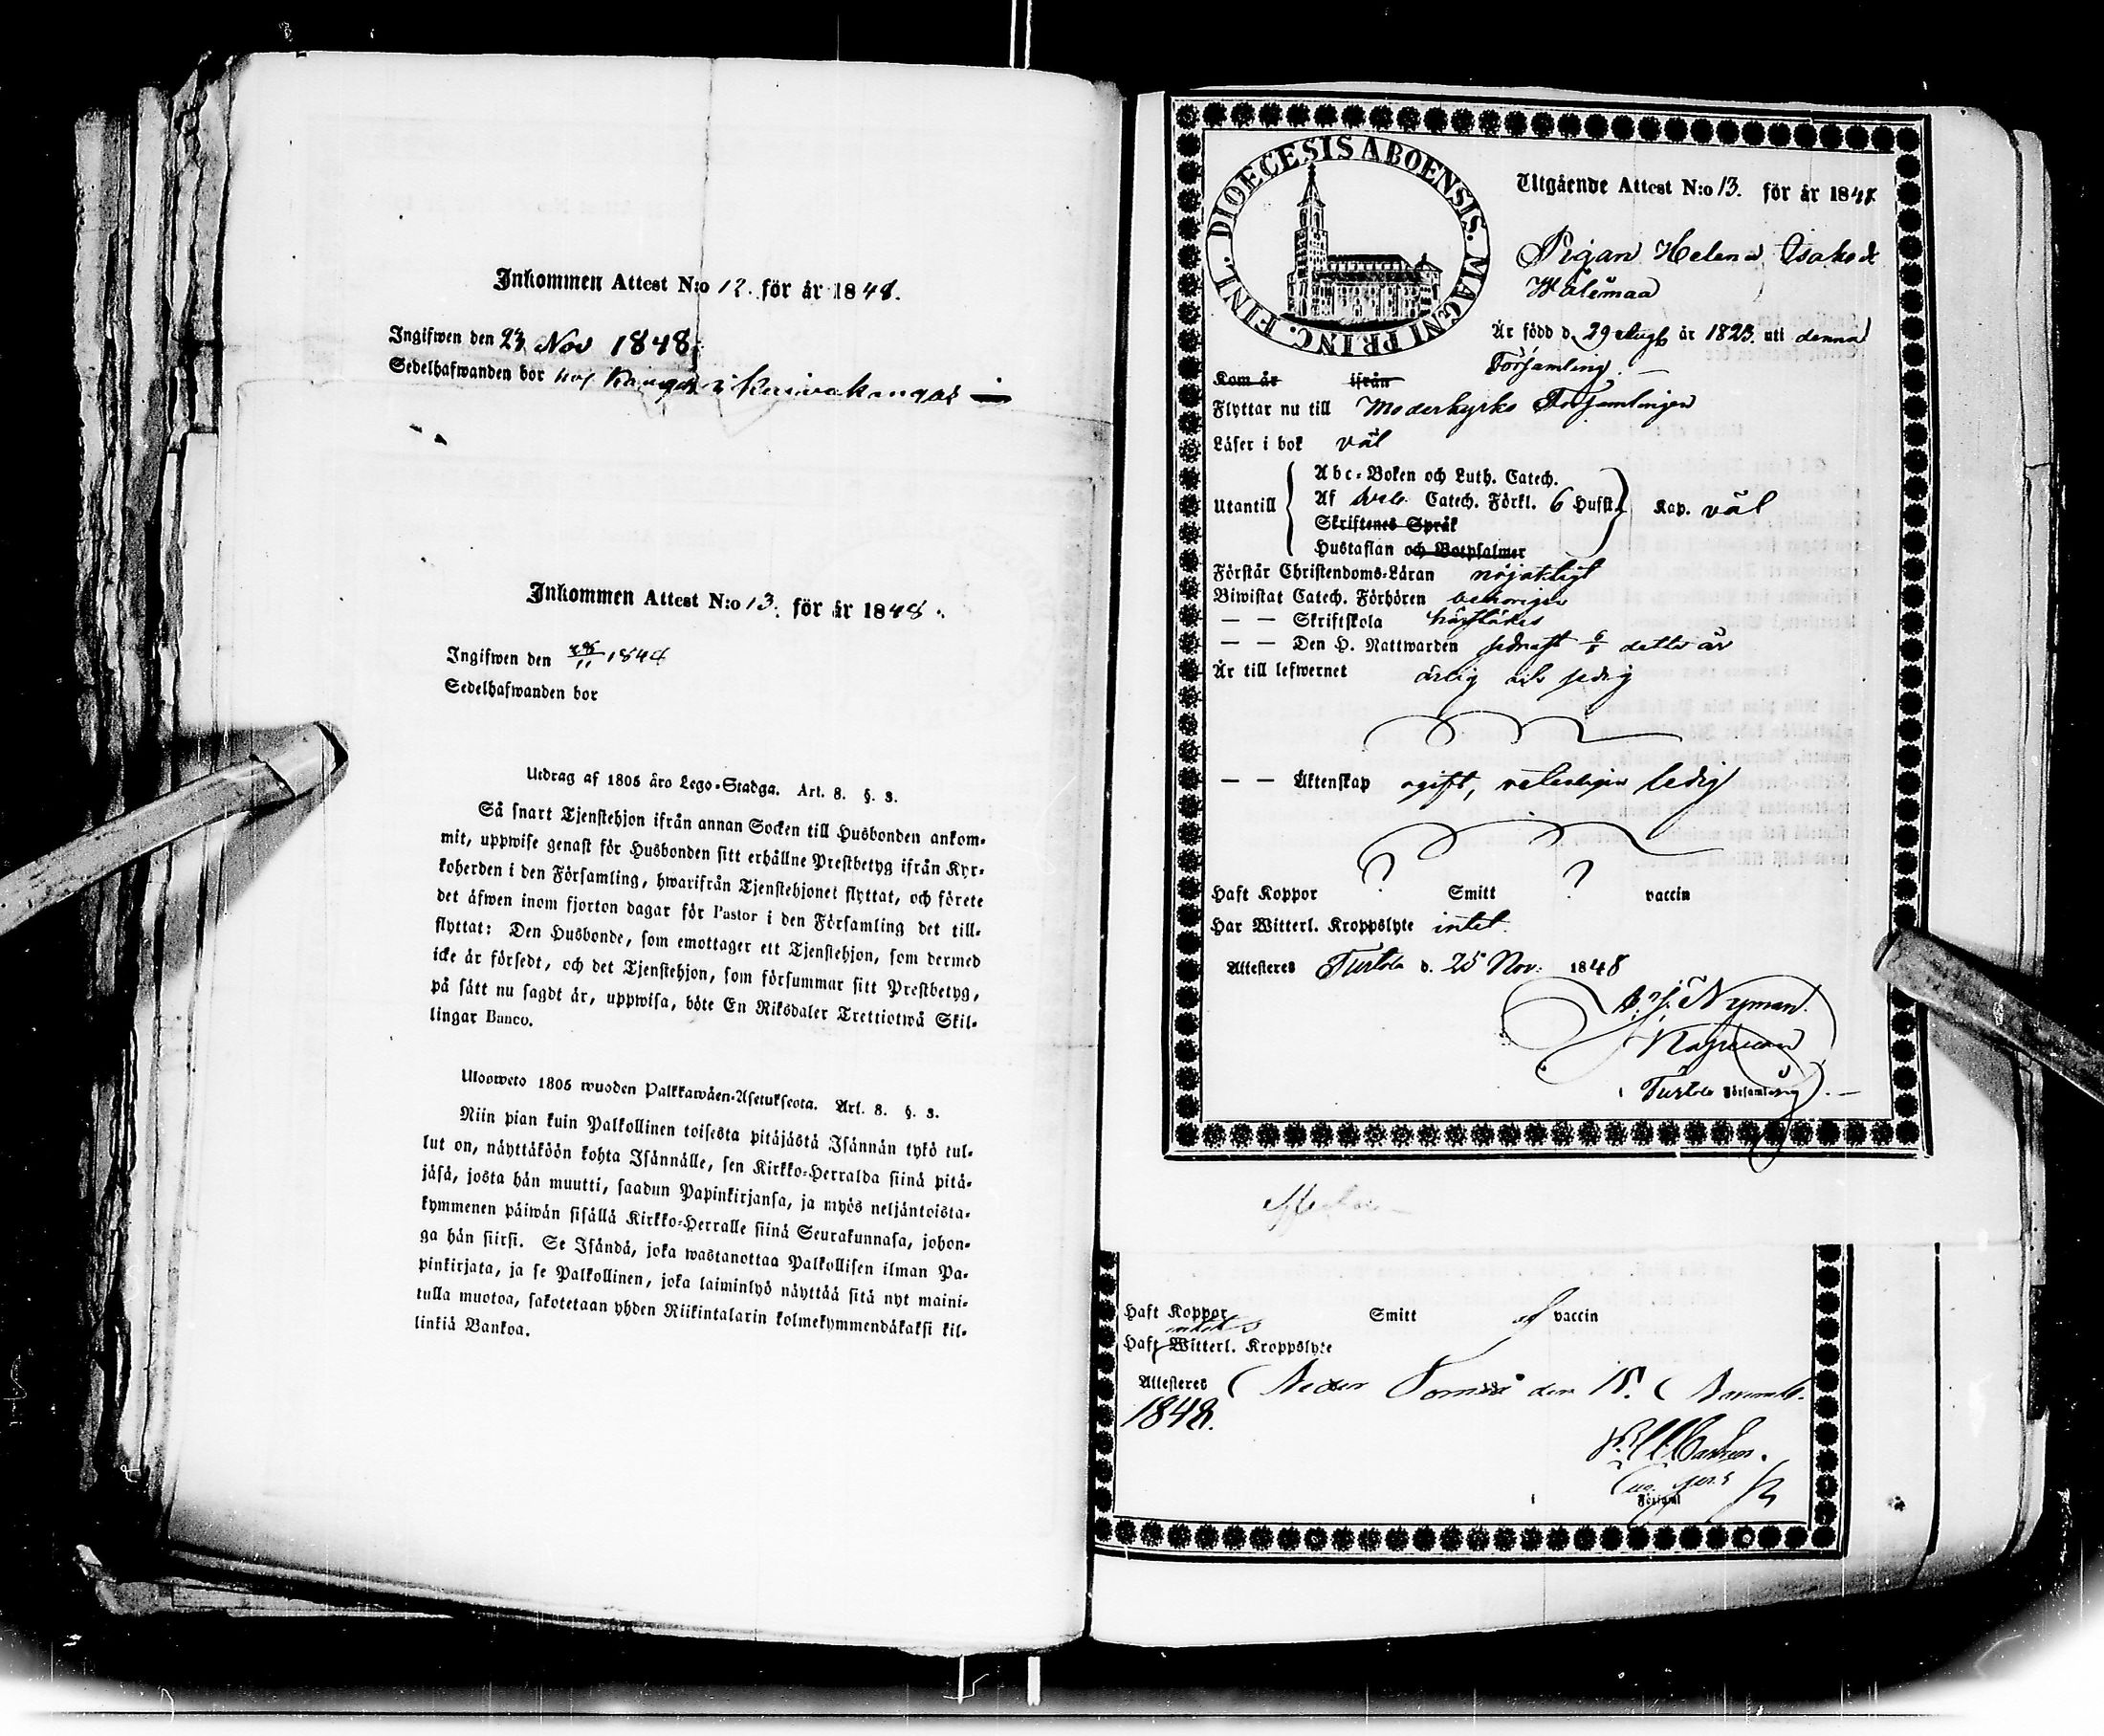 Inkommen Attest N:o 12. för år 1848.
Ingifwen den 23 Nov 1848
Sedelhafwanden bor hos i Kuivakangas
Inkommen Attest N:o 13. för år 1848.
Ingifwen den 28/11 1848
Sedelhafwanden bor
Utdrag af 1805 års Lego-Stadga. Art. 8. §. 3.
Så snart Tjenstehjon ifrån annan Socken till Husbonden ankom-
mit, uppwise genast för Husbonden sitt erhållne Prestbetyg ifrån Kyr-
koherden i den Församling, hwarifrån Tjenstehjonet flyttat, och förete
det äfwen inom fjorton dagar för Pastor i den Församling det till-
flyttat: Den Husbonde, som emottager ett Tjenstehjon, som dermed
icke är försedt, och det Tjenstehjon, som försummar sitt Prestbetyg,
på sätt nu sagdt är, uppwisa, böte En Riksdaler Trettiotwå Skil-
lingar Banco.
Ulosweto 1805 wuoden Palkkawäen-Asetuksesta. Art. 8. §. 3.
Niin pian kuin Palkollinen toisesta pitäjästä Isännän tykö tul-
lut on, näyttäköön kohta Isännälle, sen Kirkko-Herralda siinä pitä-
jäsä, josta hän muutti, saadun Papinkirjansa, ja myös neljäntoista-
kymmenen päiwän sisällä Kirkko-Herralle siinä Seurakunnasa, johon-
ga hän siirsi. Se Isändä, joka wastanottaa Palkollisen ilman Pa-
pinkirjata, ja se Palkollinen, joka laiminlyö näyttää sitä nyt maini-
tulla muotoa, sakotetaan yhden Riikintalarin kolmekymmendäkaksi kil-
linkiä Bankoa.
DIOECESIS ABOENSIS. MAGNI PRINC. FINL.
Utgående Attest N:o 13. för år 1848
Pigan Helena Isaks d.
Wälimaa
Är född d. 29 Aug år 1823. uti denna
Församling.
Kom år ifrån
Flyttar nu till Moderkyrko Församlingen
Läser i bok väl
Abc-Boken och Luth. Catech.
Utantill Af Catech. Förkl. 6 Hufst. Kap. väl
Skriftenes Språk
Hustaflan och Botpsalmer
Förstår Christendoms-Läran nöjaktigt
Biwistat Catech. Förhören behörigen
— — Skriftskola
— — Den H. Nattwarden sednast detta år
Är till lefwernet ärlig och sedig
— — Äktenskap ogift, veterligen ledig
Haft Koppor ? Smitt ? vaccin
Har Witterl. Kroppslyte intet
Attesteres Turtola d. 25 Nov: 1848
Nyman
Kapellan
i Turtola Församling.
Haft Koppor Smitt af vaccin
Haft Witterl. Kroppslyte
Attesteres Neder Torneå den 18. Novemb.
1848.
i Församl